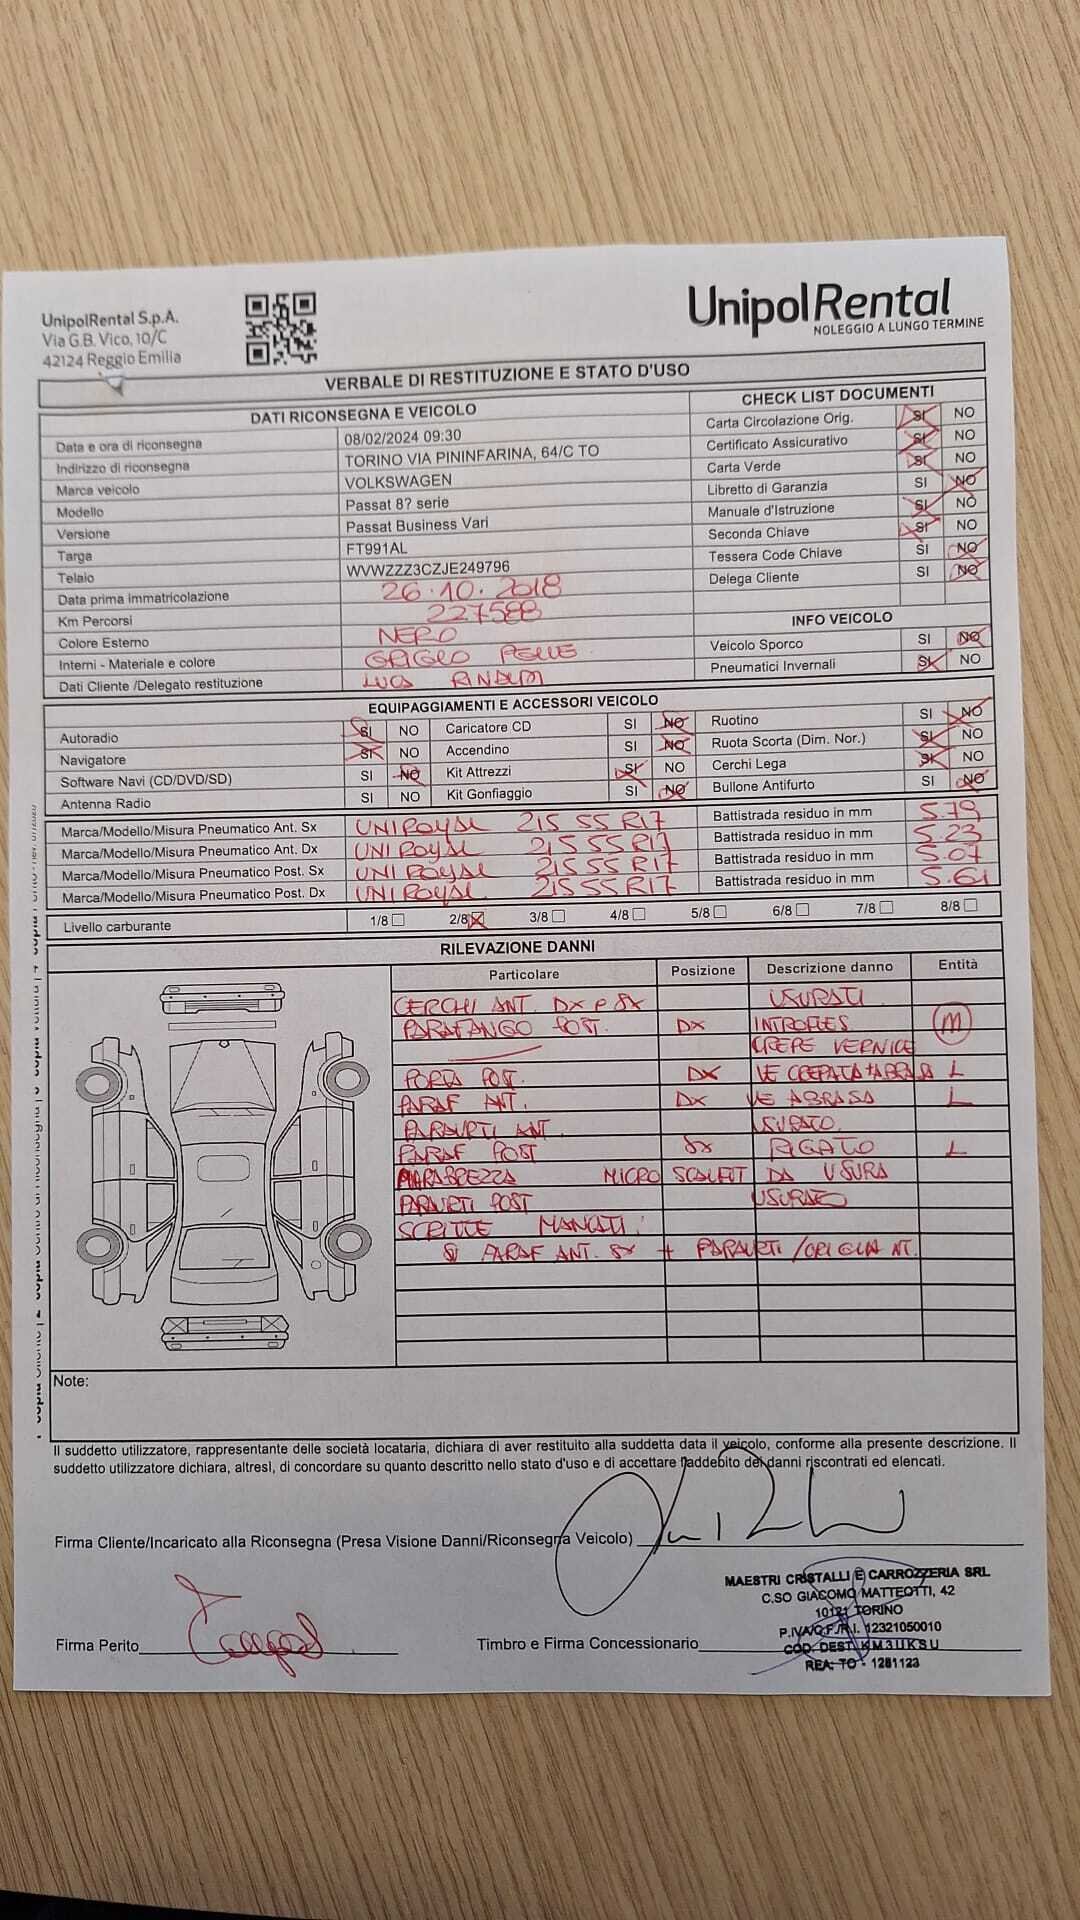 UnipolRental S.p.A.
Via G.B. Vico, 10/C
42124 Reggio Emilia
UnipolRental
NOLEGGIO A LUNGO TERMINE
VERBALE DI RESTITUZIONE E STATO D'USO
DATI RICONSEGNA E VEICOLO
Data e ora di riconsegna 08/02/2024 09:30
Indirizzo di riconsegna TORINO VIA PININFARINA, 64/C TO
Marca veicolo VOLKSWAGEN
Modello Passat 8? serie
Versione Passat Business Vari
Targa FT991AL
Telaio WVWZZZ3CZJE249796
Data prima immatricolazione 26.10.2018
Km Percorsi 227588
Colore Esterno NERO
Interni - Materiale e colore GRIGIO PELLE
Dati Cliente /Delegato restituzione LUCA
CHECK LIST DOCUMENTI
Carta Circolazione Orig. SI NO
Certificato Assicurativo SI NO
Carta Verde SI NO
Libretto di Garanzia SI NO
Manuale d'Istruzione SI NO
Seconda Chiave SI NO
Tessera Code Chiave SI NO
Delega Cliente SI NO
INFO VEICOLO
Veicolo Sporco SI NO
Pneumatici Invernali SI NO
EQUIPAGGIAMENTI E ACCESSORI VEICOLO
Autoradio SI NO Caricatore CD SI NO Ruotino SI NO
Navigatore SI NO Accendino SI NO Ruota Scorta (Dim. Nor.) SI NO
Software Navi (CD/DVD/SD) SI NO Kit Attrezzi SI NO Cerchi Lega SI NO
Antenna Radio SI NO Kit Gonfiaggio SI NO Bullone Antifurto SI NO
Marca/Modello/Misura Pneumatico Ant. Sx UNIROYAL 215 55 R17 Battistrada residuo in mm 5.79
Marca/Modello/Misura Pneumatico Ant. Dx UNIROYAL 215 55 R17 Battistrada residuo in mm 5.23
Marca/Modello/Misura Pneumatico Post. Sx UNIROYAL 215 55 R17 Battistrada residuo in mm 5.07
Marca/Modello/Misura Pneumatico Post. Dx UNIROYAL 215 55 R17 Battistrada residuo in mm 5.61
Livello carburante 1/8 2/8 3/8 4/8 5/8 6/8 7/8 8/8
RILEVAZIONE DANNI
Particolare Posizione Descrizione danno Entità
CERCHI ANT. DX e SX USURATI
PARAFANGO POST. DX INTROFLES M
CREPE VERNICE
PORTA POST. DX VE CREPATA+ABRASA L
PARAF ANT. DX VE ABRASA L
PARAURTI ANT. USURATO
PARAF POST SX RIGATO L
PARABREZZA MICRO SCALFIT DA USURA
PARAURTI POST USURATO
SCRITTE
PARAF ANT. SX + PARAURTI
Note:
Il suddetto utilizzatore, rappresentante delle società locataria, dichiara di aver restituito alla suddetta data il veicolo, conforme alla presente descrizione. Il
suddetto utilizzatore dichiara, altresì, di concordare su quanto descritto nello stato d'uso e di accettare l'addebito dei danni riscontrati ed elencati.
Firma Cliente/Incaricato alla Riconsegna (Presa Visione Danni/Riconsegna Veicolo)
Firma Perito
Timbro e Firma Concessionario
MAESTRI CRISTALLI E CARROZZERIA SRL
C.SO GIACOMO MATTEOTTI, 42
10121 TORINO
P.IVA/C.F./R.I. 12321050010
COD. DEST. KM3UKSU
REA: TO - 1281123